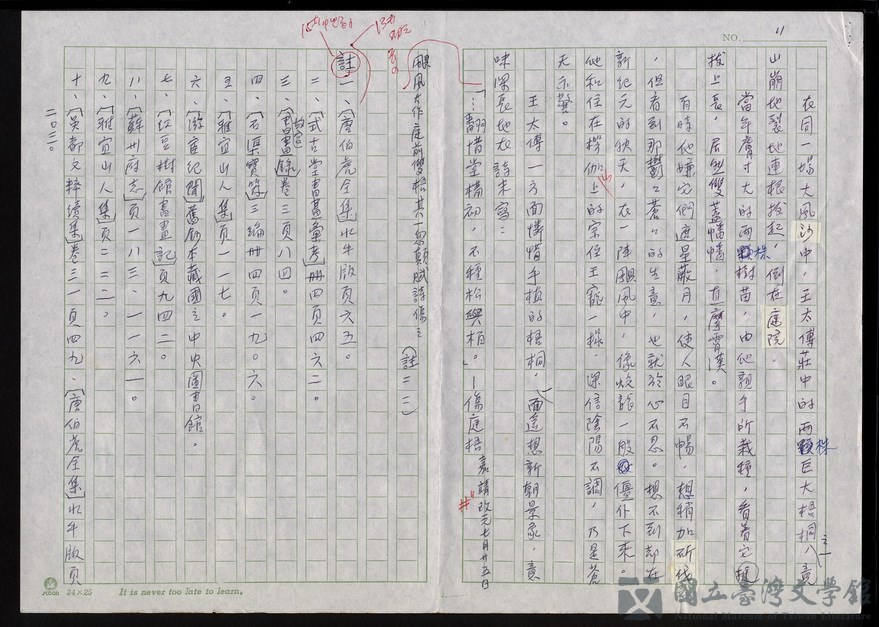 NO. 11
在同一場大風沙中,王太傅莊中的兩株巨大梧桐之一,竟
山崩地裂地連根拔起,倒在庭院。
當年膚寸大的兩株樹苗,由他親手所栽種,看著它
拔上長,居然雙蓋幡幡,直摩霄漢。
有時他嫌它們遮星蔽月,使人眼目不暢,想稍加斫伐
,但看到那鬱鬱蒼蒼的生意,也就於心不忍。想不到却在
新紀元的秋天,在一陣颶風中,像蛟龍一般優仆下來。
他和住在楞伽山上的宗侄王寵一樣,深信陰陽不調,乃是蒼
天示警。
王太傅一方面憐惜手植的梧桐,一面遙想新朝景象,意
味深長地在詩末寫:
「…翻惜堂構初,不種松與柏。」—傷庭梧 嘉靖改元七月廿五日
颶風大作庭前雙梧其一忽顛賦詩傷之(註一一)
註
一、〔唐伯虎全集〕水牛版頁六五。
二、〔式古堂書畫彙考〕冊四頁四六二。
三、〔吳越所見書畫錄〕卷三頁八四。
四、〔石渠寶笈〕三編冊四頁一九〇六。
五、〔雅宜山人集〕頁一一七。
六、〔游宦紀聞〕舊鈔本藏國立中央圖書館。
七、〔紅豆樹館書畫記〕頁九四二。
八、〔蘇州府志〕頁一八三、一一六一。
九、〔雅宜山人集〕頁二三二。
十、〔吳都文粹續集〕卷三一頁四九、〔唐伯虎全集〕水牛版頁
二〇三〇。
24×25 It is never too late to learn.
國立臺灣文學館
National Museum of Taiwan Literature